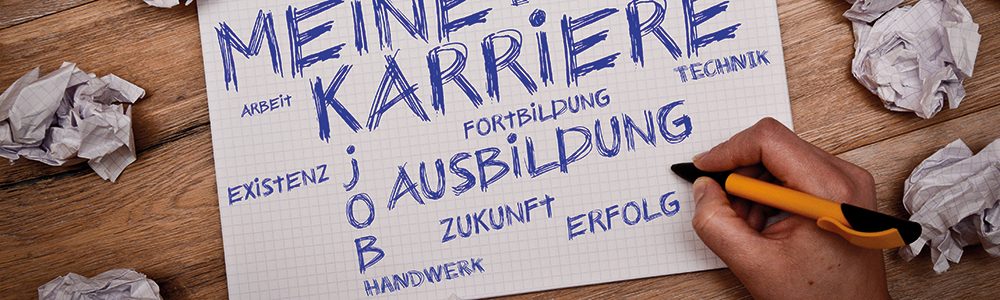 MEINE
KARRIERE
ARBEIT
TECHNIK
FORTBILDUNG
JOB
AUSBILDUNG
EXISTENZ
ZUKUNFT
ERFOLG
HANDWERK